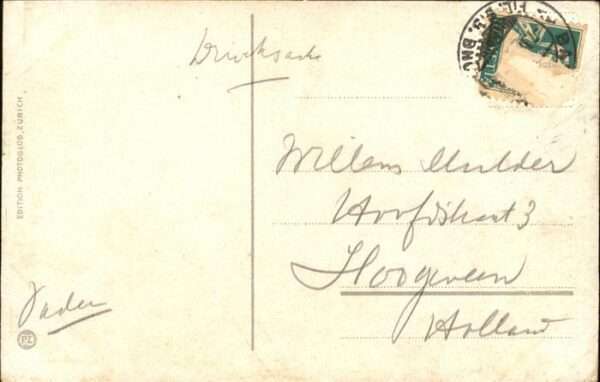 Drucksache
Willem Mulder
Hoofdstraat 3
Hoogeveen
Holland
Vader
EDITION PHOTOGLOB, ZÜRICH.
PZ